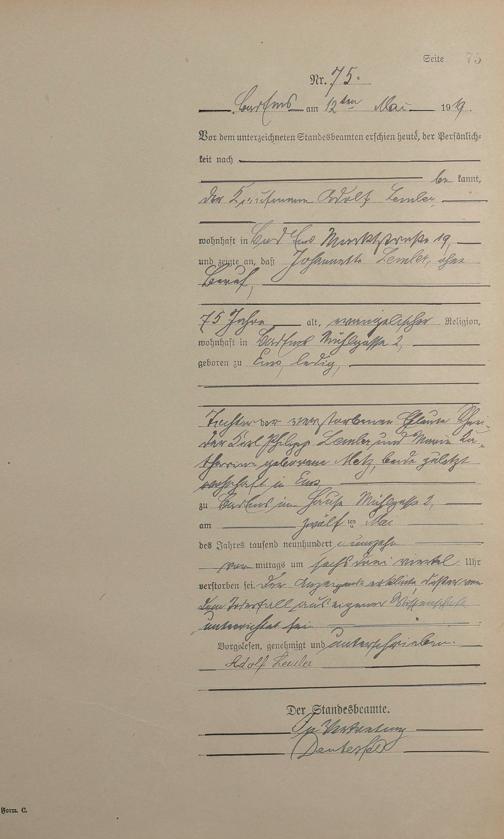 Seite 75
Nr. 75.
Bad Ems am 12ten Mai 19 19.
Vor dem unterzeichneten Standesbeamten erschien heute, der Persönlich-
keit nach
be kannt,
der Kaufmann Adolf Lemler
wohnhaft in Bad Ems Marktstraße 19,
und zeigte an, daß Johannette Lemler, ohne
Beruf,
75 Jahre alt, evangelischer Religion,
wohnhaft in Bad Ems Mühlgasse 2,
geboren zu Ems, ledig,
Tochter der verstorbenen Eheleute
Karl Philipp Lemler und Maria Ka-
tharina geborene Metz, beide zuletzt
wohnhaft in Ems
zu Bad Ems im Hause Mühlgasse 2,
am zwölften Mai
des Jahres tausend neunhundert neunzehn
vor mittags um sechs drei viertel Uhr
verstorben sei. Der Anzeigende erklärte, daß er von
dem Sterbefall aus eigener Wissenschaft
unterrichtet sei
Vorgelesen, genehmigt und unterschrieben.
Adolf Lemler
Der Standesbeamte.
In Vertretung
Form. C.